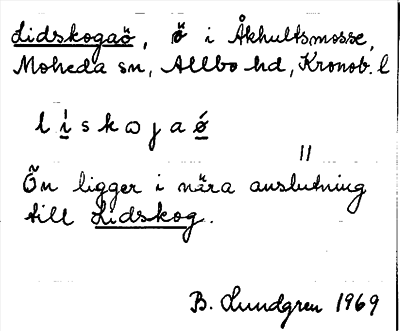 Lidskogaö, ö i Åkhultsmosse,
Moheda sn, Allbo hd, Kronob. l
l í s k ω j a ǿ
Ön ligger i nära anslutning
till Lidskog.
B. Lundgren 1969